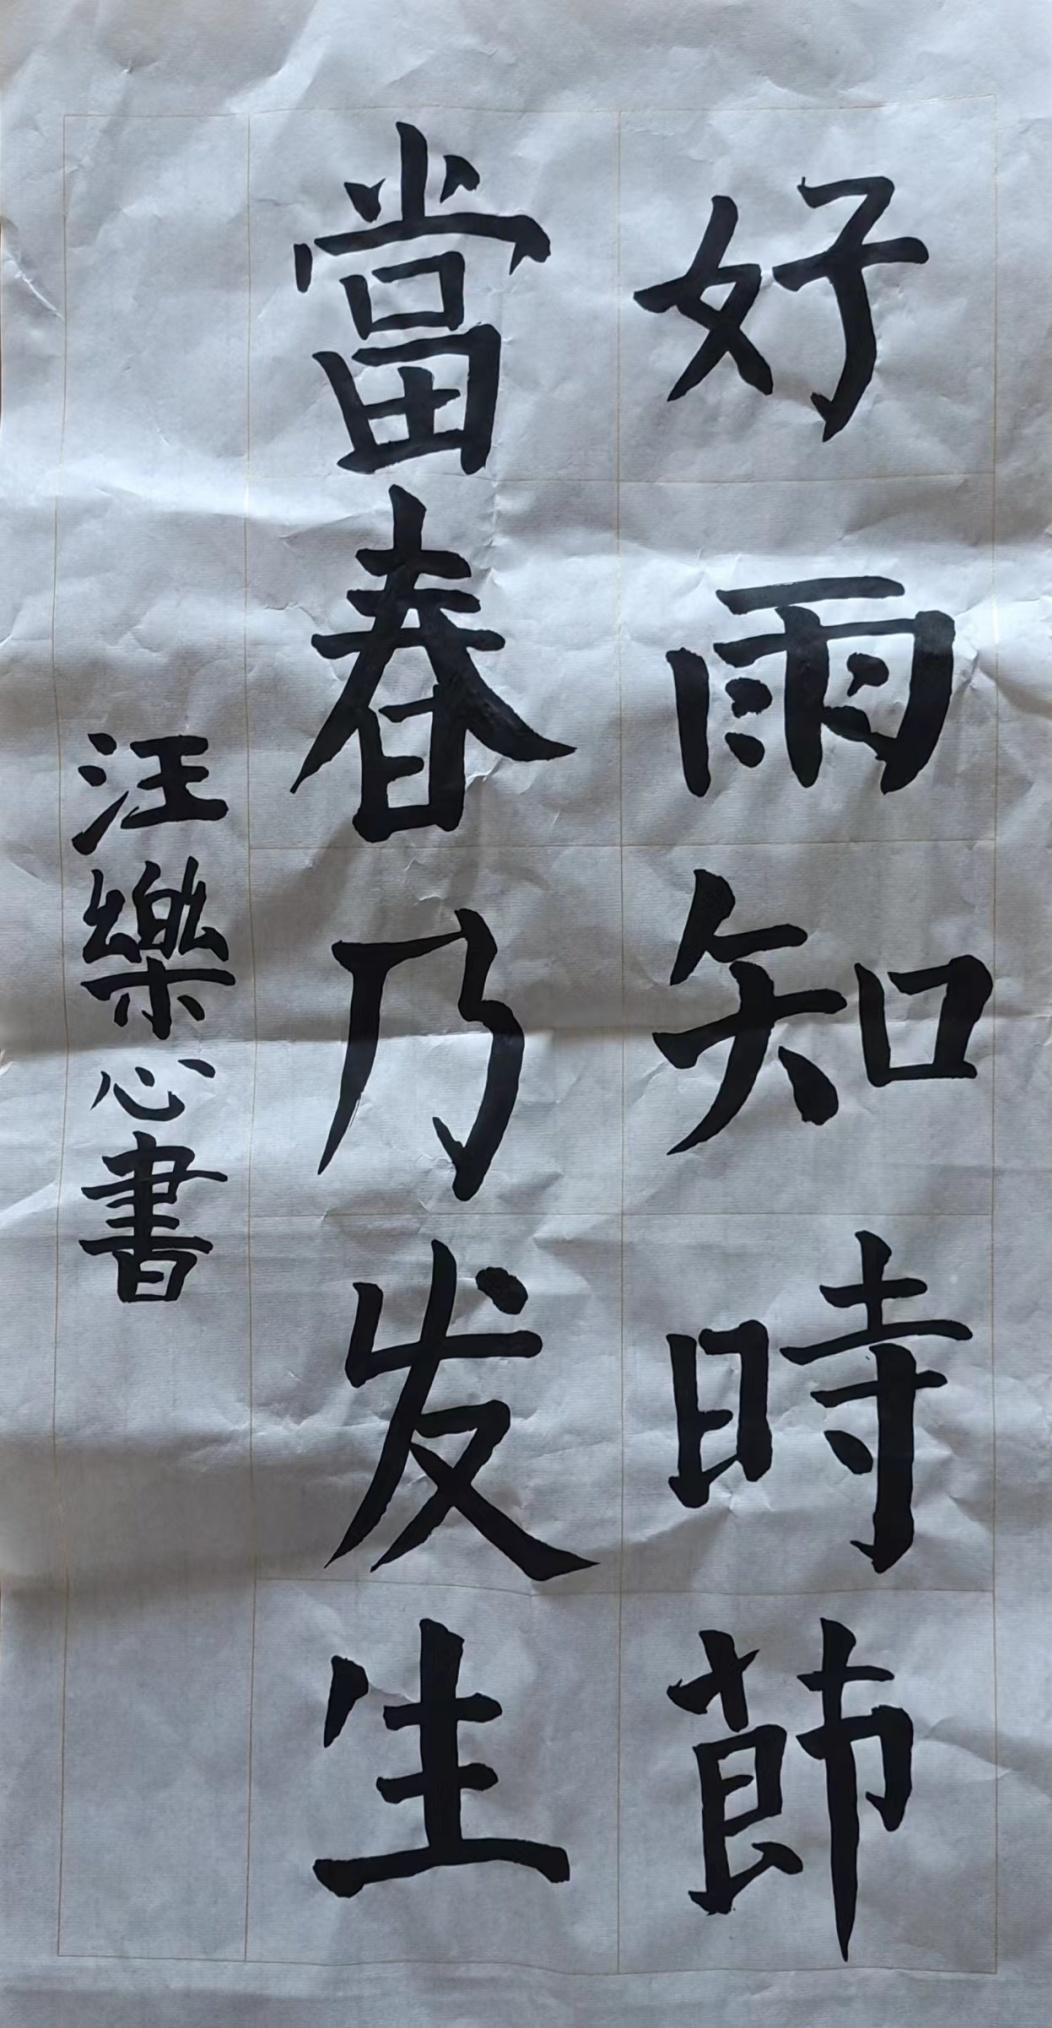 好雨知時節
當春乃发生
汪樂心書